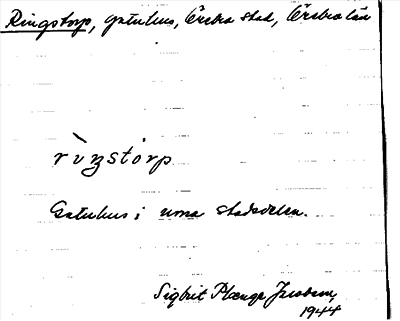 Ringstorp, gatuhus, Örebro stad, Örebro län
rìŋstórp
Gatuhus i norra stadsdelen.
Sigbrit Plænge Jacobson,
1944